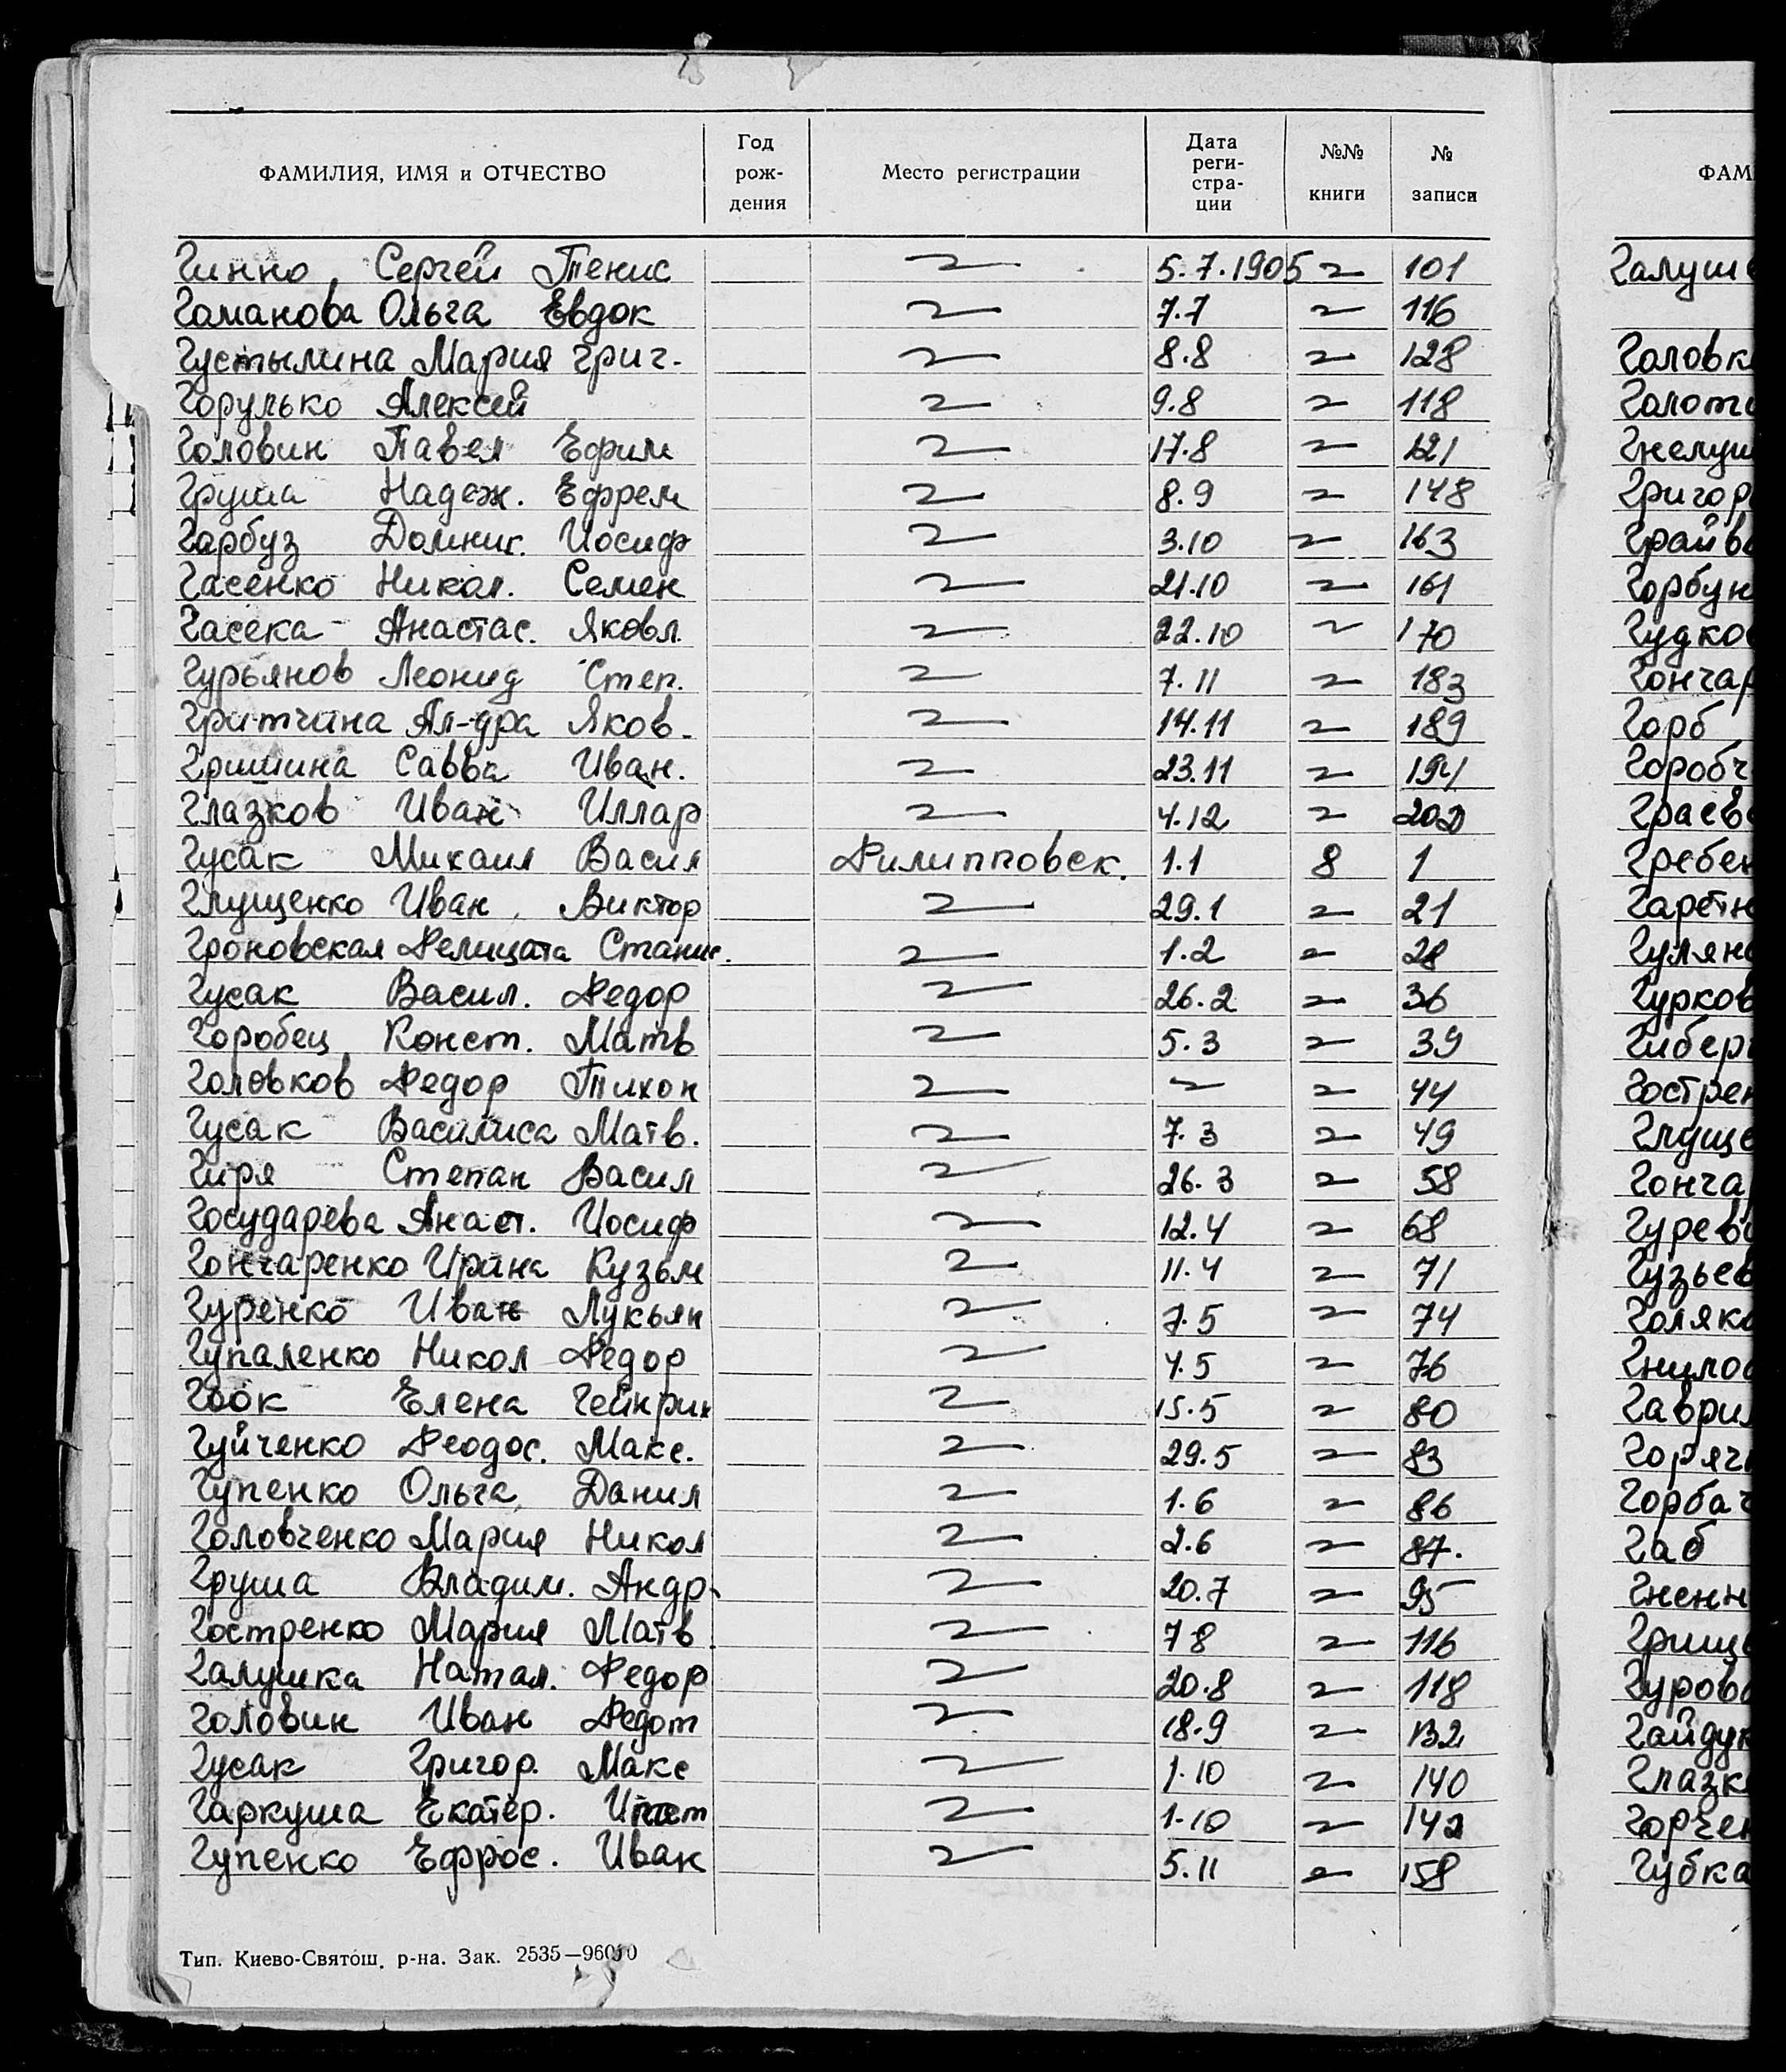 ФАМИЛИЯ, ИМЯ и ОТЧЕСТВО Год рождения Место регистрации Дата регистрации №№ книги № записи
Гинно Сергей Тенис 〃 5.7.1905 〃 101
Гаманова Ольга Евдок 〃 7.7 〃 116
Густылина Мария Григ. 〃 8.8 〃 128
Горулько Алексей 〃 9.8 〃 118
Головин Павел Ефим 〃 17.8 〃 121
Груша Надеж. Ефрем 〃 8.9 〃 148
Гарбуз Домник. Иосиф 〃 3.10 〃 163
Гасенко Никол. Семен 〃 21.10 〃 161
Гасека Анастас. Яковл. 〃 22.10 〃 170
Гурьянов Леонид Степ. 〃 7.11 〃 183
Гритчина Ал-дра Яков. 〃 14.11 〃 189
Гришина Савва Иван. 〃 23.11 〃 194
Глазков Иван Иллар 〃 4.12 〃 202
Гусак Михаил Васил Филипповск. 1.1 8 1
Глущенко Иван Виктор 〃 29.1 〃 21
Гроновская Фелицата Станис. 〃 1.2 〃 28
Гусак Васил. Федор 〃 26.2 〃 36
Горобец Конст. Матв 〃 5.3 〃 39
Головков Федор Тихон 〃 〃 〃 44
Гусак Василиса Матв. 〃 7.3 〃 49
Гиря Степан Васил 〃 26.3 〃 58
Государева Анаст. Иосиф 〃 12.4 〃 68
Гончаренко Ирина Кузьм 〃 11.4 〃 71
Гуренко Иван Лукьян 〃 7.5 〃 74
Гупаленко Никол Федор 〃 4.5 〃 76
Гоок Елена Гейнрих 〃 15.5 〃 80
Гуйченко Феодос. Макс. 〃 29.5 〃 83
Гупенко Ольга Данил 〃 1.6 〃 86
Головченко Мария Никол 〃 2.6 〃 87.
Груша Владим. Андр. 〃 20.7 〃 95
Гостренко Мария Матв. 〃 7 8 〃 116
Галушка Натал. Федор 〃 20.8 〃 118
Головин Иван Федот 〃 18.9 〃 132
Гусак Григор. Макс 〃 1.10 〃 140
Гаркуша Екатер. 〃 1.10 〃 142
Гупенко Ефрос. Иван 〃 5.11 〃 158
Тип. Киево-Святош. р-на. Зак. 2535—96000
ФАМ
Галуш
Головк
Гнелуш
Григор
Грайв
Горбун
Гудков
Гончар
Горб
Горобч
Граев
Гребен
Гаретн
Гулян
Гурков
Гибер
Гострен
Глуще
Гонча
Гурев
Гузьев
Голяк
Гнило
Гаврил
Горяч
Горбач
Габ
Гненн
Грищ
Гуров
Гайдук
Глазк
Горчен
Губка